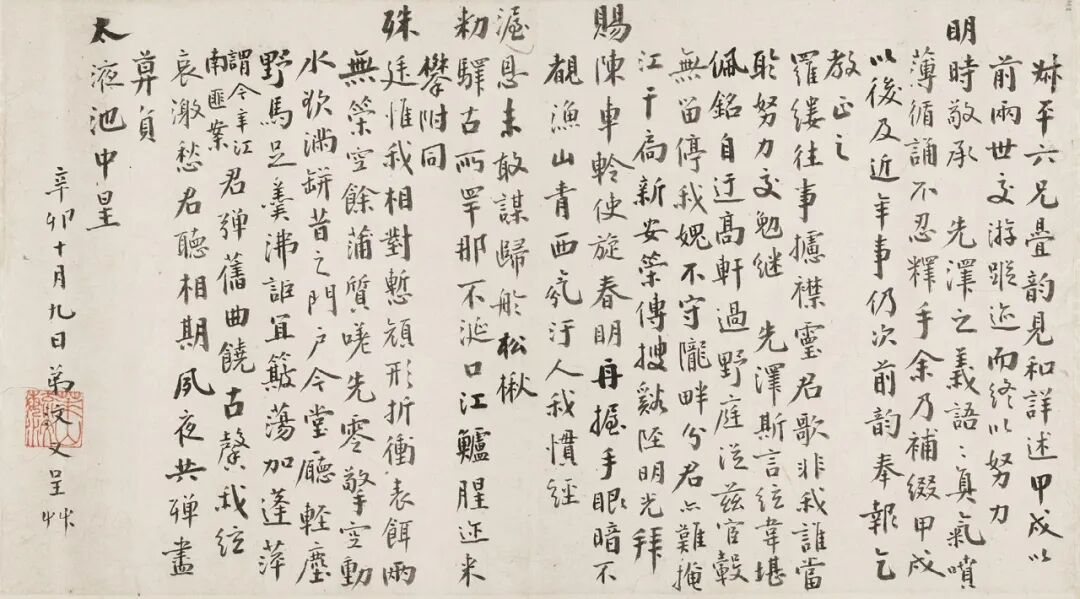 叔平六兄疊韵見和詳述甲戌以
前兩世交游蹤迹而終以努力
明時敬承先澤之義語:真氣噴
薄循誦不忍釋手余乃補綴甲戌
以後及近年事仍次前韵奉報乞
教正之
羅縷往事攄襟靈君歌非我誰當
聆努力交勉繼先澤斯言絃韋堪
佩銘自迂高軒過野庭從茲官轂
無留停我媿不守隴畔分君亦難掩
江干扃新安榮傳搜谿陘明光拜
賜陳車軨使旋春明再握手眼暗不
覩漁山青西氛汙人我慣經
渥恩未敢謀歸於松楸
勑驛古所罕那不涎口江鱸腥迩来
攀附同
殊廷惟我相對慙頑形折衝表餌兩
無策空餘蒲質嗟先零擎空動
水欲滿缾昔之門戶今堂廳輕塵
野馬足羹沸詎宜簸蕩加蓬萍
謂今年江南匪案
君彈舊曲饒古聲我絃
哀激愁君聽相期夙夜共殫盡
算負
太液池中星
辛卯十月九日弟汶文呈艸